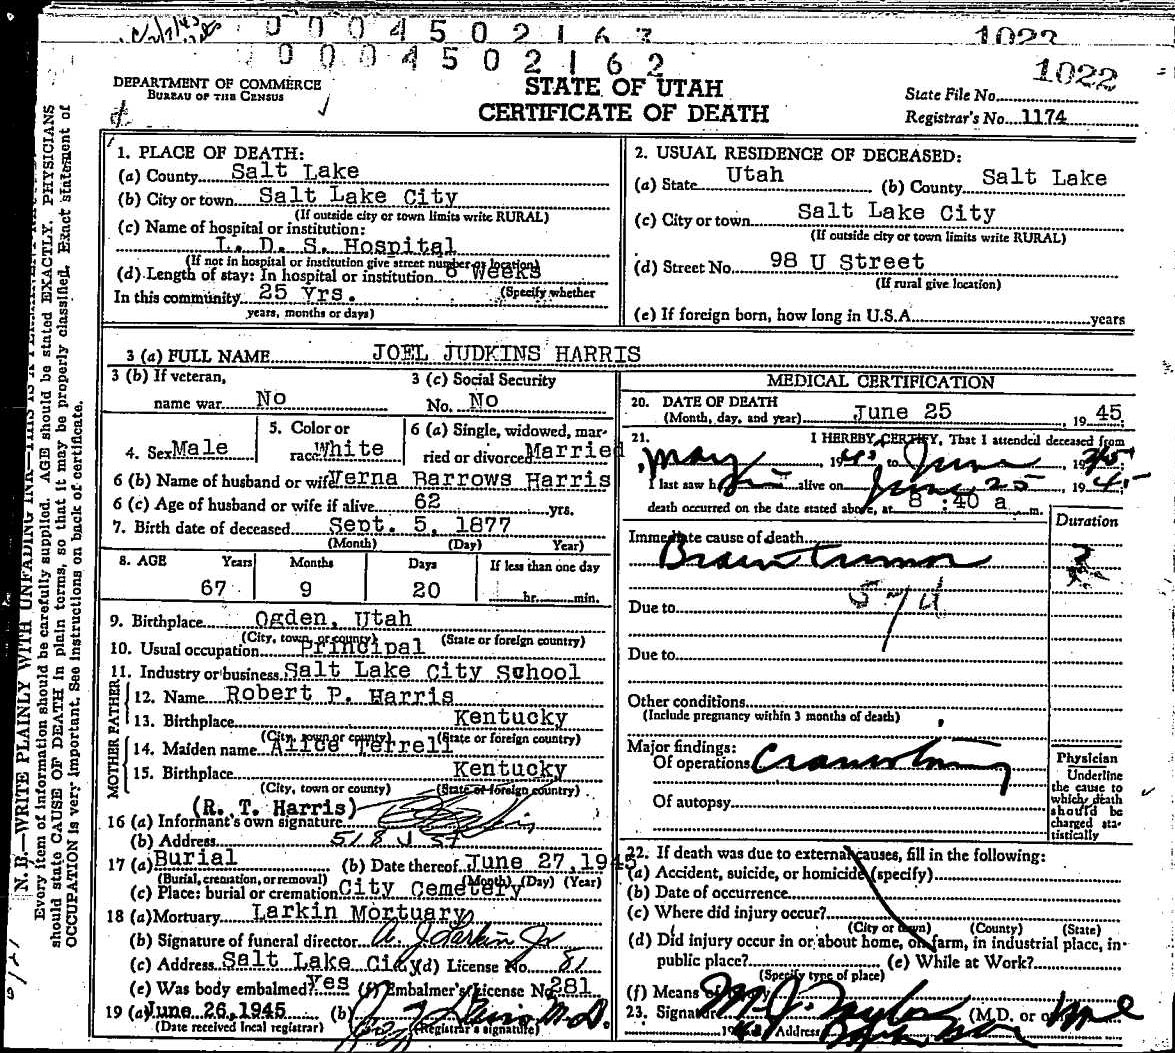 0 0 0 4 5 0 2 1 6 3
1022
0 0 0 4 5 0 2 1 6 2
1022
DEPARTMENT OF COMMERCE
BUREAU OF THE CENSUS
STATE OF UTAH
CERTIFICATE OF DEATH
State File No.
Registrar's No. 1174
N. B.—WRITE PLAINLY WITH UNFADING INK—THIS IS A PERMANENT
Every item of information should be carefully supplied. AGE should be stated EXACTLY. PHYSICIANS
should state CAUSE OF DEATH in plain terms, so that it may be properly classified. Exact statement of
OCCUPATION is very important. See instructions on back of certificate.
1. PLACE OF DEATH:
(a) County Salt Lake
(b) City or town Salt Lake City
(If outside city or town limits write RURAL)
(c) Name of hospital or institution:
L. D. S. Hospital
(If not in hospital or institution give street number or location)
(d) Length of stay: In hospital or institution 6 Weeks
(Specify whether
In this community 25 Yrs.
years, months or days)
2. USUAL RESIDENCE OF DECEASED:
(a) State Utah (b) County Salt Lake
(c) City or town Salt Lake City
(If outside city or town limits write RURAL)
(d) Street No. 98 U Street
(If rural give location)
(e) If foreign born, how long in U.S.A. years
3 (a) FULL NAME JOEL JUDKINS HARRIS
3 (b) If veteran,
name war No
3 (c) Social Security
No. No
4. Sex Male
5. Color or
race White
6 (a) Single, widowed, mar-
ried or divorced Married
6 (b) Name of husband or wife Verna Barrows Harris
6 (c) Age of husband or wife if alive 62 yrs.
7. Birth date of deceased Sept. 5, 1877
(Month) (Day) Year)
8. AGE Years Months Days If less than one day
67 9 20 hr. min.
9. Birthplace Ogden, Utah
(City, town or county) (State or foreign country)
10. Usual occupation Principal
11. Industry or business Salt Lake City School
FATHER
12. Name Robert P. Harris
13. Birthplace Kentucky
(City, town or county) (State or foreign country)
MOTHER
14. Maiden name Alice Terrell
15. Birthplace Kentucky
(City, town or county) (State or foreign country)
(R. T. Harris)
16 (a) Informant's own signature
(b) Address 518 J St
17 (a) Burial (b) Date thereof June 27, 1945
(Burial, cremation, or removal) (Month) (Day) (Year)
(c) Place: burial or cremation City Cemetery
18 (a) Mortuary Larkin Mortuary
(b) Signature of funeral director A J Larkin Jr
(c) Address Salt Lake City (d) License No. 81
(e) Was body embalmed? Yes (f) Embalmer's License No. 281
19 (a) June 26, 1945 (b) M.D.
(Date received local registrar) (Registrar's signature)
MEDICAL CERTIFICATION
20. DATE OF DEATH
(Month, day, and year) June 25 , 19 45
21. I HEREBY CERTIFY, That I attended deceased from
May , 19 45 to June , 19 45
I last saw h im alive on June 25 , 19 45
death occurred on the date stated above, at 8 :40 a m.
Duration
Immediate cause of death
Brain tumor
57d
Due to
Due to
Other conditions
(Include pregnancy within 3 months of death)
Major findings:
Of operations Craniotomy
Of autopsy
Physician
Underline
the cause to
which death
should be
charged sta-
tistically
22. If death was due to external causes, fill in the following:
(a) Accident, suicide, or homicide (specify)
(b) Date of occurrence
(c) Where did injury occur?
(City or town) (County) (State)
(d) Did injury occur in or about home, on farm, in industrial place, in
public place? (e) While at Work?
(Specify type of place)
(f) Means of
23. Signature (M.D. or
19 Address